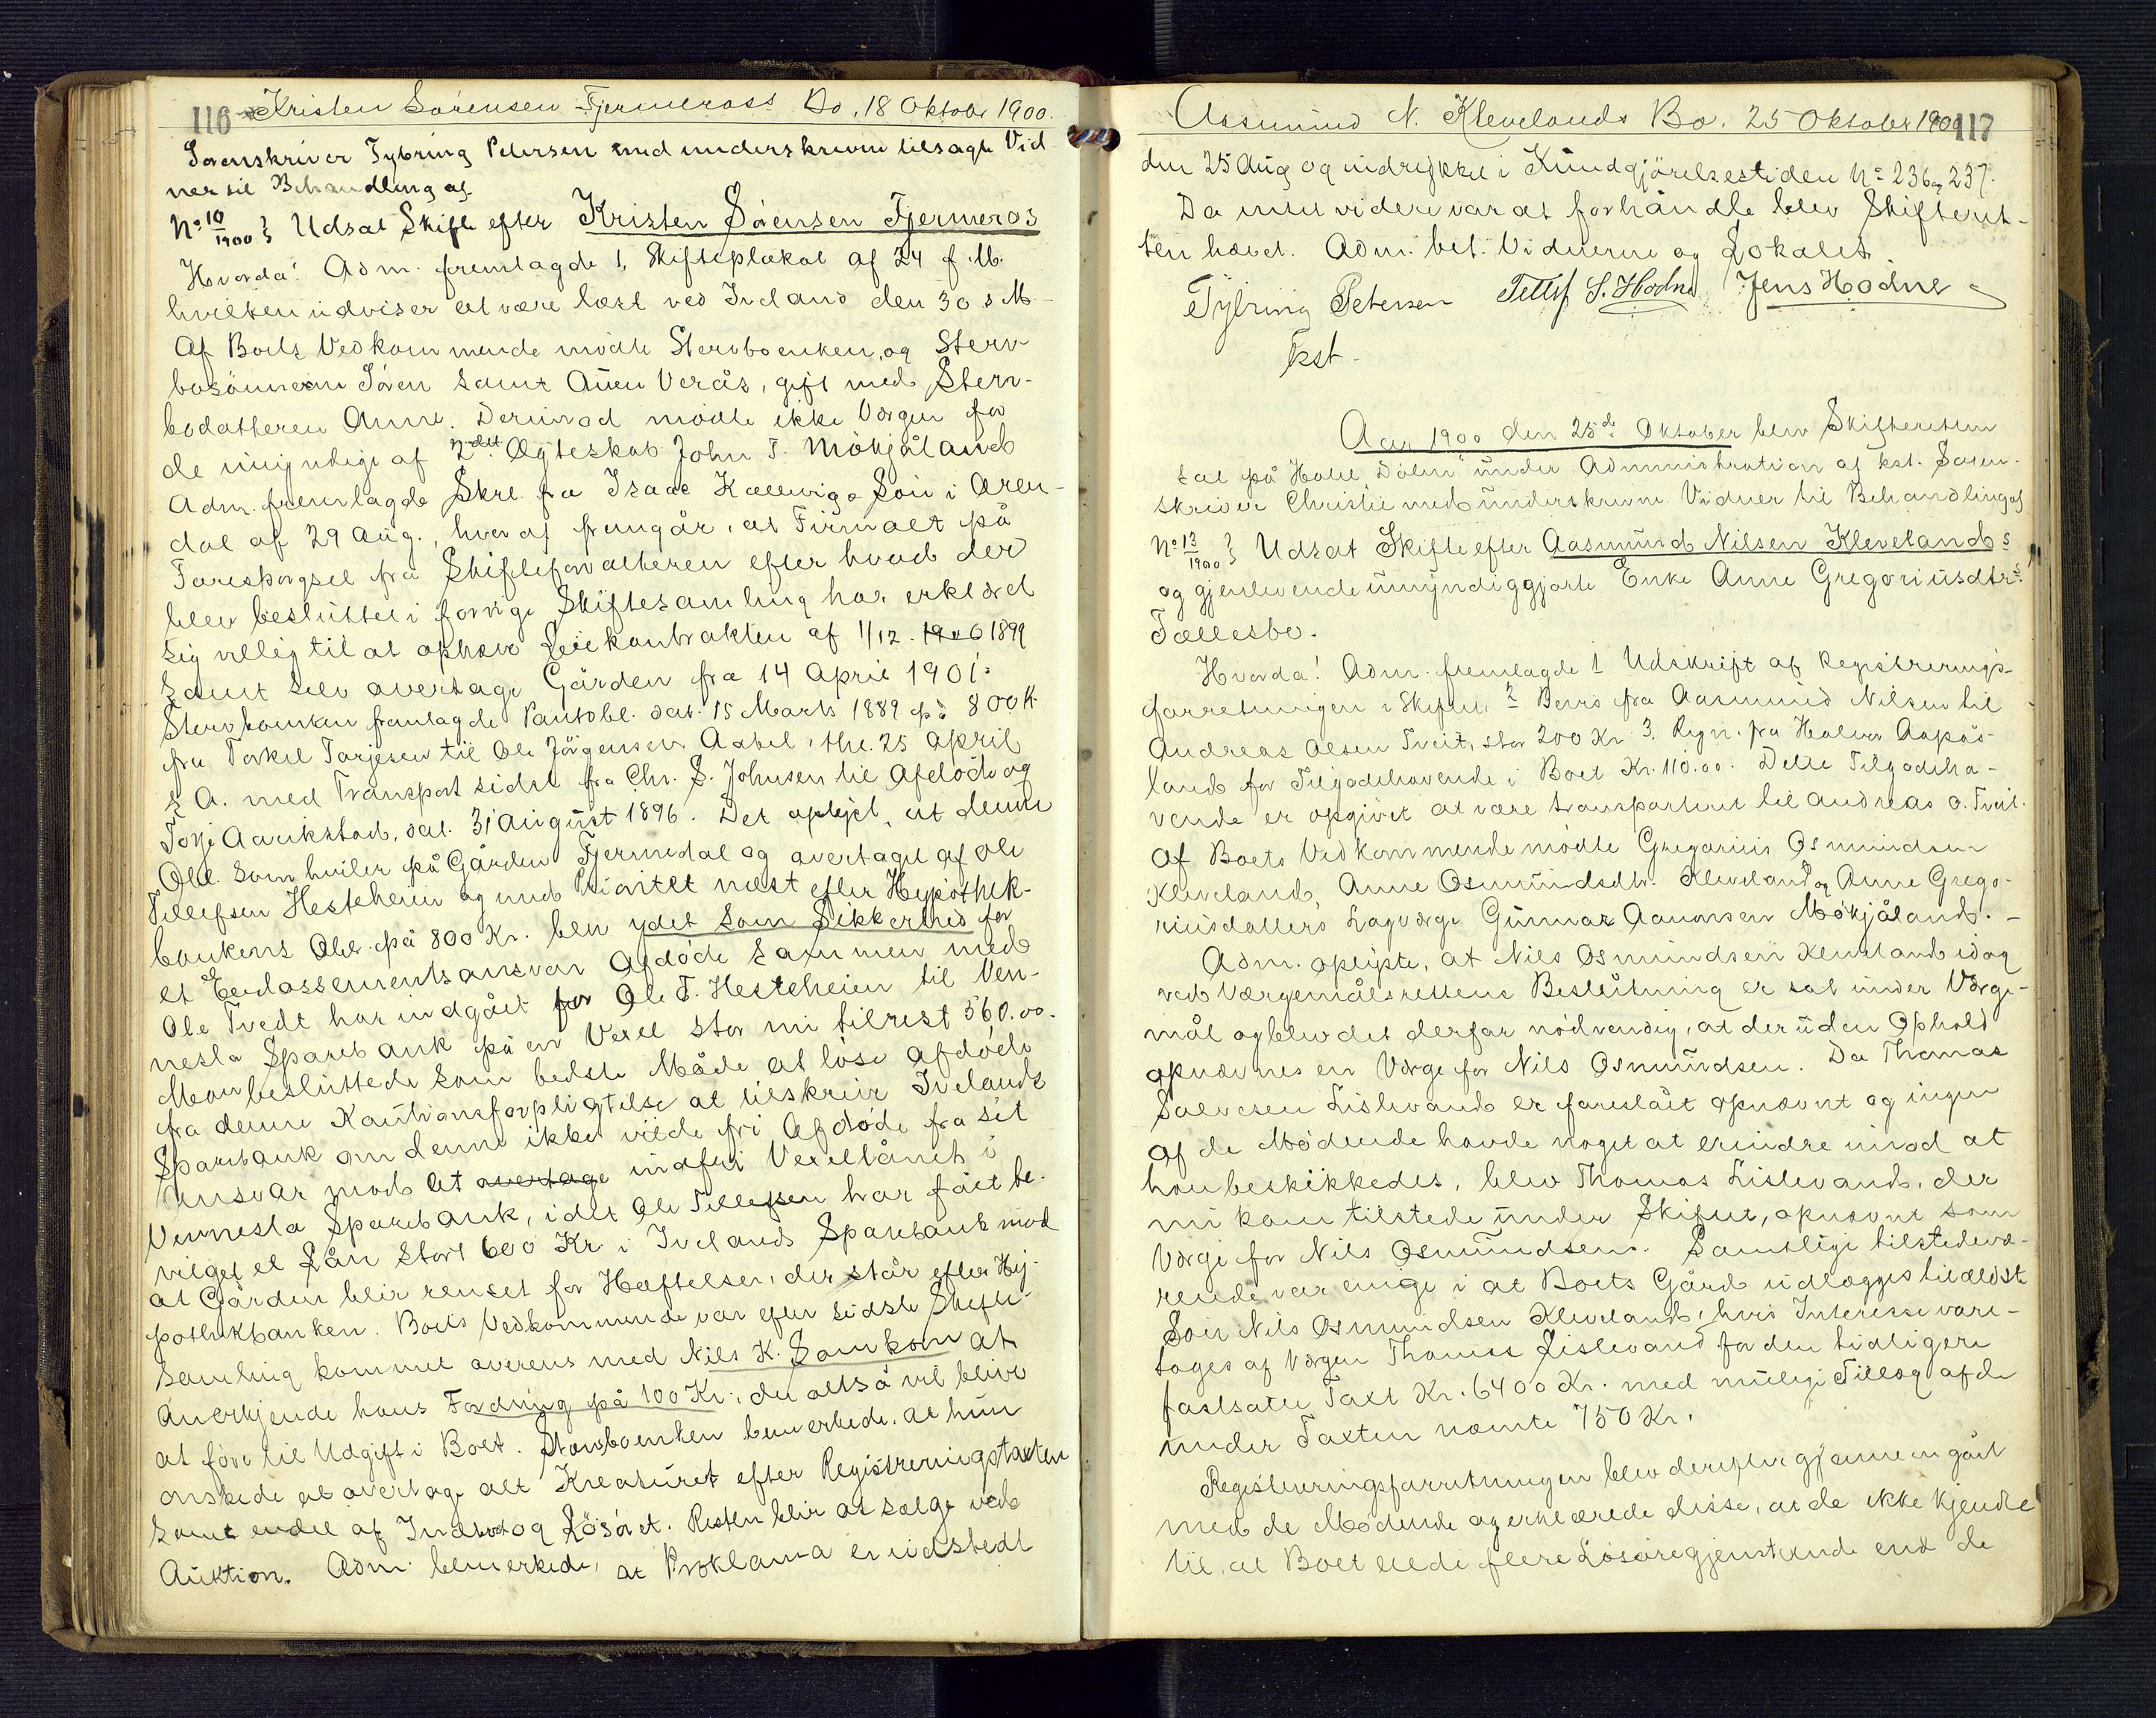 116 Kristen Sørensen Fjermeros's Bo, 18 Oktober 1900.
Sorenskriver Tybring Petersen med underskrevne tilsagte Vid-
ner til Behandling af
No 10/1900 } Udsat Skifte efter Kristen Sørensen Fjermeros
Hvorda: Adm. fremlagde 1, Skifteplakat af 24 f. M.
hvilken udviser at være læst ved Iveland den 30 s M-
Af Boets Vedkommende mødte Stervboenken, og Sterv-
bosønnerne Søren samt Aüen Verås, gift med Sterv-
bodatteren Anne. Derimod mødte ikke Værgen for
de umyndige af 2det Ægteskab John T. Mökjåland
Adm. fremlagde Skre. fra Isaac Kallevig & Søn i Aren-
dal af 29 Aüg., hvoraf fremgår, at Firmaet på
Forespørgsel fra Skifteforvalteren efter hvad der
blev beslüttet i forrige Skiftesamling har erklæret
sig villig til at ophæve Leiekontrakten af 1/12. 1906 1899
samt selv overtage Gården fra 14 April 1901.
Stervboenken fremlagde Pantobl. dat. 15 Marts 1889 på 800 K
fra Torkel Tarjesen til Ole Jörgensen Aabel, thl. 25 April
s A. med Transport sidst fra Chr. S. Johnsen til Afdøde og
Torje Aaukstad, dat. 31 August 1896. Det oplyst, at denne
Obl. som hviler på Gården Fjermedal og overtaget af Ole
Tellefsen Hesteheien og med Prioritet næst efter Hypothek-
bankens Obl. på 800 Kr. blev ydet som Sikkerhed for
et Endossementsansvar Afdöde sammen med
Ole Tvedt har indgået for Ole T. Hesteheien til Ven-
nesla Sparebank på en Vexel stor nu tilrest 560.00.
Man beslüttede som bedste Måde at löse Afdöde
fra denne Kautionsforpligtelse at tilskrive Ivelands
Sparebank om denne ikke vilde fri Afdöde fra sit
Ansvar mod at overtage indfri Vexellånet i
Vennesla Sparebank, idet Ole Tellefsen har fået be-
vilget et Lån stort 600 Kr i Ivelands Sparebank mod
at Gården blir renset for Hæftelser, der står efter Hy-
pothekbanken. Boets Vedkommende var efter sidste Skifte-
samling kommet overens med Nils K. Somkom at
anerkjende hans Fordring på 100 Kr; der altså vil blive
at føre til Udgift i Boet. Stervboenken bemerkede, at hun
ønskede at overtage alt Kreatüret efter Registreringstaxten
samt endel af Indbo og Løsøret. Resten blir at sælge ved
Auktion. Adm. bemerkede, at Proklama er udstedt
Aasmund N. Klevelands Bo. 25 Oktober 1900 117
den 25 Aug og indrykket i Kundgjörelsestidende No 236 og 237.
Da intet videre var at forhandle blev Skifteret-
ten hævet. Adm. bet. Vidnerne og Lokalet.
Tybring Petersen Tellef S. Hodne Jens Hodne
kst.
Aar 1900 den 25de Oktober blev Skifteretten
sat på Hotel „Dölen" under Administration af kst. Soren-
skriver Christie med underskrevne Vidner til Behandling af
No 13/1900 } Udsat Skifte efter Aasmünd Nilsen Klevelands
og gjenlevende umyndiggjorte Enke Anne Gregoriüsdtrs
Fællesbo.
Hvorda! Adm. fremlagde 1 Udskrift af Registrerings-
forretningen i Skiftet. 2 Bevis fra Aasmünd Nilsen til
Andreas Olsen Tveit, stor 200 Kr 3. Regn. fra Halvor Aapås-
land for Tilgodehavende i Boet Kr. 110.00. Dette Tilgodeha-
vende er opgivet at være transporteret til Andreas O. Tveit.
Af Boets Vedkommende mødte Gregorius Osmundsen
Kleveland, Anne Osmündsdtr. Kleveland og Anne Grego-
riusdatters Lagværge Günnar Aanonsen Mökjåland. -
Adm. oplyste, at Nils Osmündsen Kleveland idag
ved Værgemålsrettens Beslütning er sat under Værge-
mål og blev det derfor nödvendig, at der üden Ophold
opnævnes en Værge for Nils Osmundsen. Da Thomas
Salvesen Lislevand er foreslået opnævnt og ingen
af de Mødende havde noget at erindre imod at
han beskikkedes, blev Thomas Lislevand, der
nu kom tilstede ünder Skiftet, opnævnt som
Værge for Nils Osmündsen. Samtlige tilstedevæ-
rende var enige i at Boets Gård udlægges til ældste
Søn Nils Osmundsen Kleveland, hvis Interesse vare-
tages af Værgen Thomas Lislevand for den tidligere
fastsatte Taxt Kr. 6400 Kr. med mulige Tillæg af de
ünder Taxten nævnte 750 Kr.
Registreringsforretningen blev derefter gjennemgået
med de Mødende og erklærede disse, at de ikke kjendte
til, at Boet eiede flere Løsøregjenstande end de